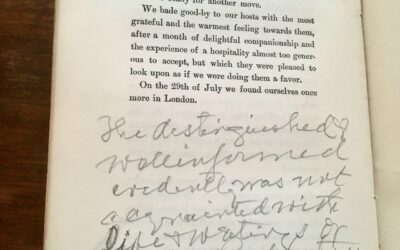 for another move.
We bade good-by to our hosts with the most
grateful and the warmest feeling towards them,
after a month of delightful companionship and
the experience of a hospitality almost too gener-
ous to accept, but which they were pleased to
look upon as if we were doing them a favor.
On the 29th of July we found ourselves once
more in London.
The distinguished &
well informed
evidently was not
acquainted with
life & writings of